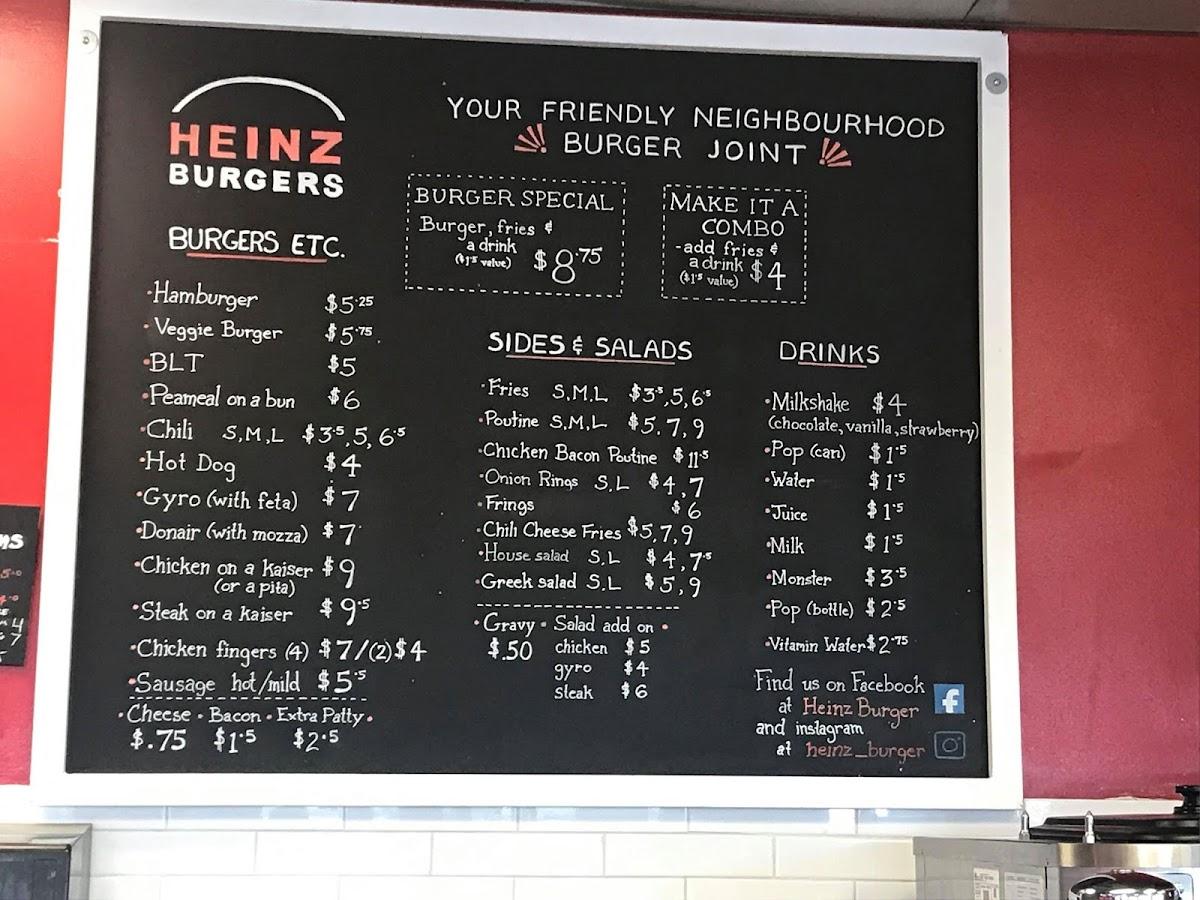 HEINZ
BURGERS
YOUR FRIENDLY NEIGHBOURHOOD
BURGER JOINT
BURGER SPECIAL
Burger, fries &
a drink
($1.5 value)
$8.75
MAKE IT A
COMBO
-add fries &
a drink
($1.5 value)
$4
BURGERS ETC.
•Hamburger $5.25
•Veggie Burger $5.75
•BLT $5
•Peameal on a bun $6
•Chili S,M,L $3.5,5,6.5
•Hot Dog $4
•Gyro (with feta) $7
•Donair (with mozza) $7
•Chicken on a kaiser $9
(or a pita)
•Steak on a kaiser $9.5
•Chicken fingers (4) $7/(2)$4
•Sausage hot/mild $5.5
•Cheese • Bacon • Extra Patty •
$.75 $1.5 $2.5
SIDES & SALADS
•Fries S,M,L $3.5,5,6.5
•Poutine S,M,L $5,7,9
•Chicken Bacon Poutine $11.5
•Onion Rings S,L $4,7
•Frings $6
•Chili Cheese Fries $5,7,9
•House salad S,L $4,7.5
•Greek salad S,L $5,9
•Gravy • Salad add on •
$.50 chicken $5
gyro $4
steak $6
DRINKS
•Milkshake $4
(chocolate, vanilla, strawberry)
•Pop (can) $1.5
•Water $1.5
•Juice $1.5
•Milk $1.5
•Monster $3.5
•Pop (bottle) $2.5
•Vitamin Water $2.75
Find us on Facebook
at Heinz Burger
and instagram
at heinz_burger